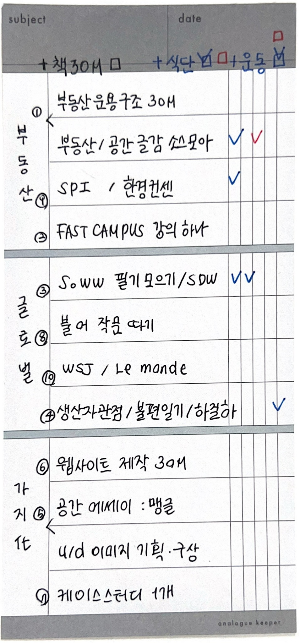 subject date
+책30M □ +식단 ☑ □ +운동 ☑ □
부동산
① 부동산운용구조 30M
부동산/공간글감 소스모아 ✓ ✓
④ SPI / 한경컨센 ✓
② FAST CAMPUS 강의하나
글로벌
③ SoWW 필기모으기/SDW ✓✓
⑧ 불어 작문 따기
⑩ WSJ / Le monde
생산자관점/불편일기/하결하 ✓
가지化
⑥ 웹사이트 제작 30M
⑤ 공간 에세이 : 맹글
u/d 이미지 기획·구상
케이스스터디 1개
analogue keeper